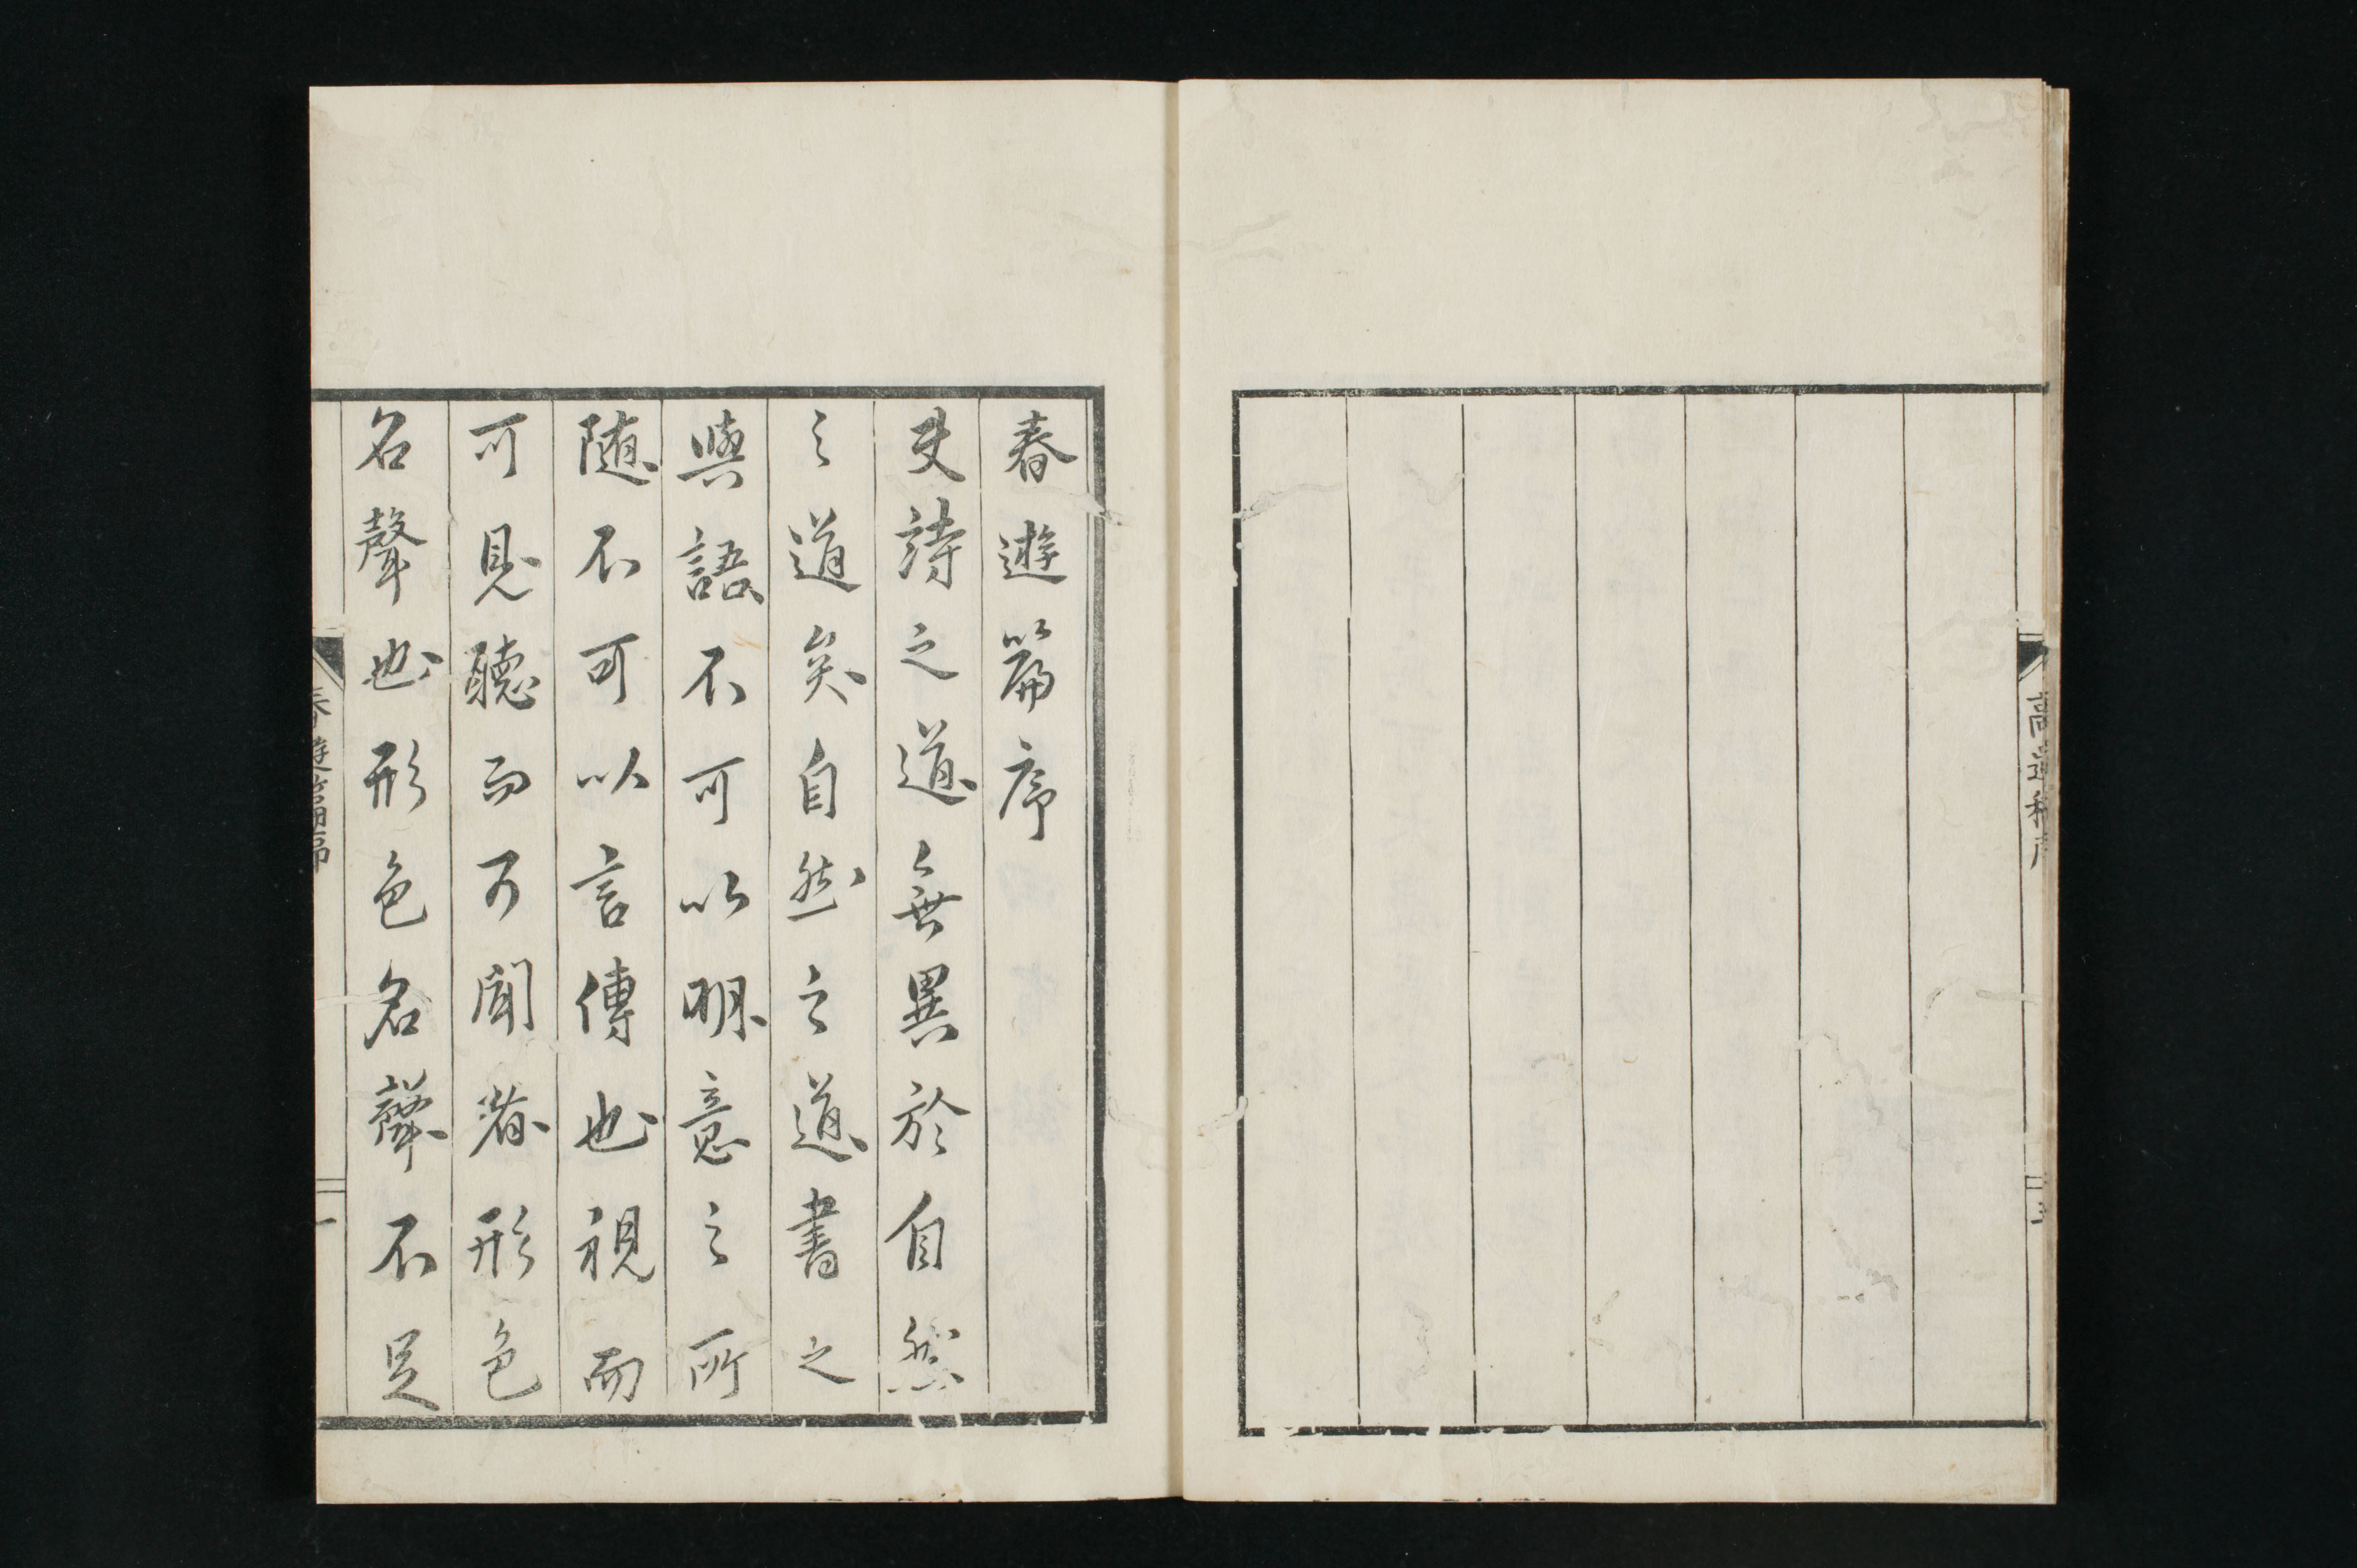 春遊篇序
夫詩之道無異於自然
之道矣自然之道書之
與語不可以明意之所
随不可以言傳也視而
可見聽而可聞者形色
名聲也形色名聲不足
春遊篇序
一